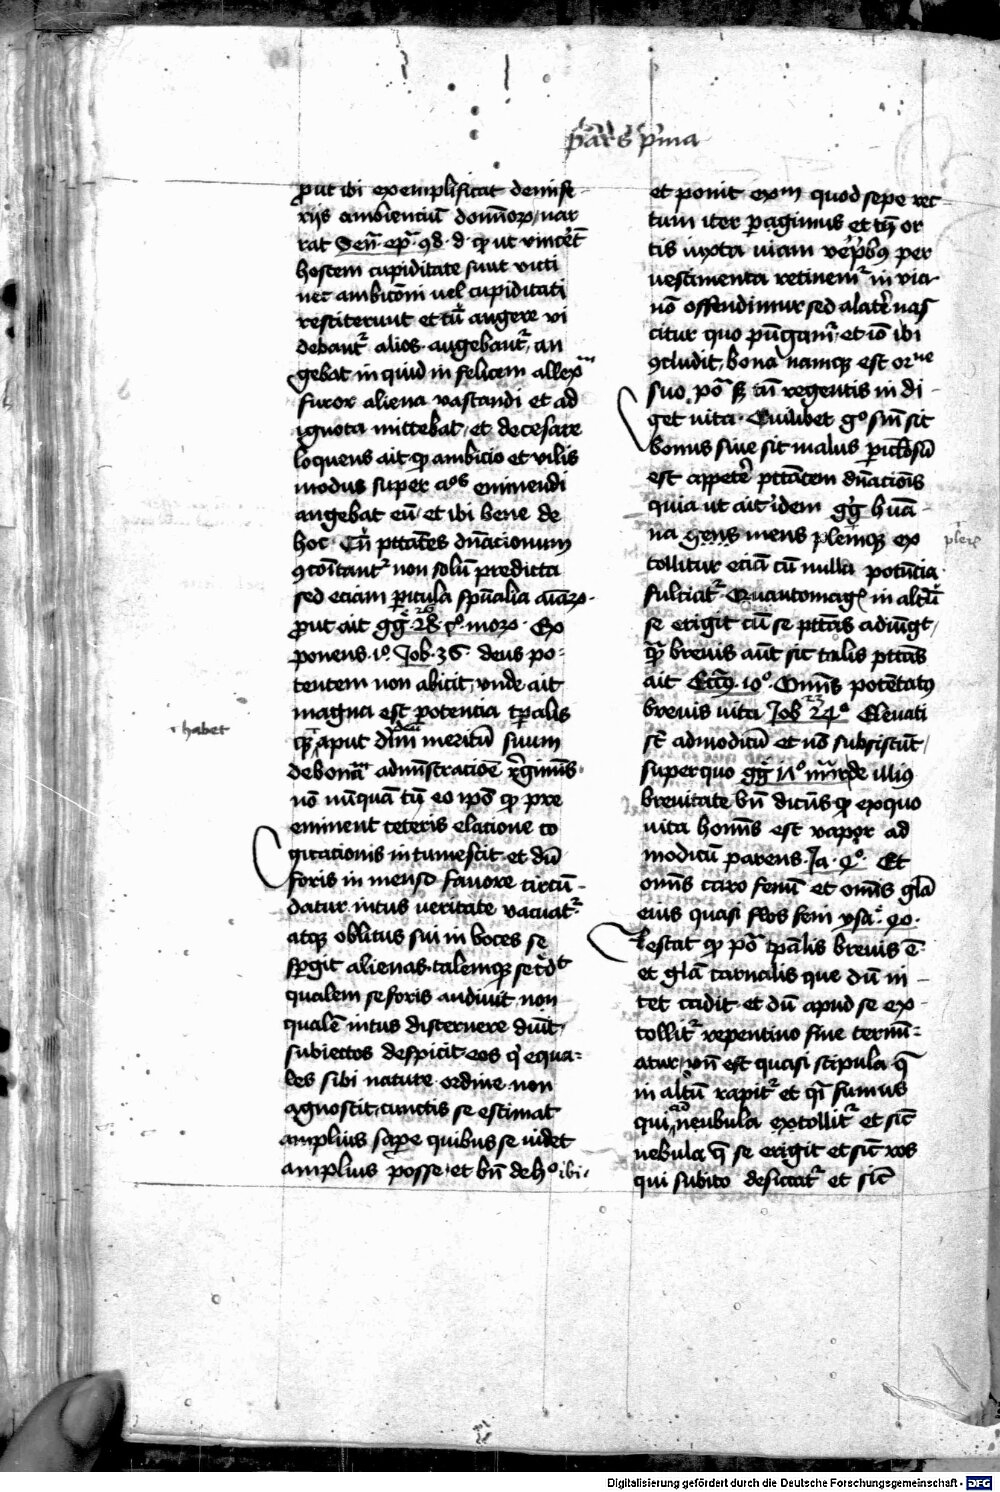 pars p̄ma
ꝓut ibi exemplificat demise
rijs ambienciū domīoꝝ nar
rat Señ ep̄ 98 d ꝙ ut vincēt
hostem cupiditate sunt victi
nec ambicōni vel cupiditati
restiterunt et cū augere vi
debant alios augebant, an
gebat inquid in felicem allexᵐ
furor aliena vastandi et ad
ignota mittebat, et de cesare
loquens ait ꝙ ambicio et vilis
modus super aᵒˢ eminendi
angebat eū et ibi bene de
hoc Cū ptt̄ates dn̄acionum
ꝯcoītant non solū predicta
sed eciam ꝑicula spūalia aīaꝝ
ꝓut ait gg̃ 26 moꝝ Ex
ponens iᵒ Job 36 deus po
tentem non abicit, vnde ait
magna est potencia tꝑalis
aput dm̄ meritū suum
de bona admīstracioē rḡiminis
nō nūquā tn̄ eo ipō ꝙ pre
eminent ceteris elacione co
gitacionis intumescit et dū
foris in menso fauore circū
datur intus veritate vacuat
atqꝫ oblitus sui in voces se
spgit alienas talemqꝫ se cr̄dᵗ
qualem se foris audiuit non
qualē intus discernere dūit
subiectos despicit eos qꝫ equa
les sibi nature ordine non
agnoscit, cunctis se estimat
amplius sape quibus se videt
amplius posse et bn̄ de hᵒ ibi
habet
et ponit exᵐ quod sepe rec
tum iter ꝑagimus et tn̄ or
tis iuxta viam vepribꝫ per
uestimenta retinemʳ in via
nō offendimur sed a latere nas
citur quo pūgamʳ et iō ibi
ꝯcludit, bona namqꝫ est orⁿᵉ
suo pō sꝫ tn̄ regentis in di
get vita Quilibet gᵒ siū sit
bonus siue sit malus ꝑiclosū
est appetere ptt̄atem dn̄acionis
quia ut ait idem gg̃ hūa
na gens mens plerūqꝫ ex
tollitur eciā cū nulla potēcia
fulciatʳ Quantomagꝭ in altū
se erigit cū se ptt̄as adiūgt
qꝫ breuis aūt sit talis ptt̄as
ait Ecc̄i 10ᵒ Omīs potētatꝰ
breuis vita Job 24ᵒ Eleuati
sūt ad modicū et nō subsistēt
super quo gg̃ de illiꝰ
breuitate bn̄ dicūs ꝙ ex quo
vita homīs est vapor ad
modicū parens Ja 4ᵒ Et
omīs caro fenū et omīs glā
eius quasi flos feni ysa 40
restat ꝙ pō tꝑalis breuis ē
et glā carnalis que dū ni
tet cadit et dū apud se ex
tollitʳ repentino fine termi
atur, nn̄ est quasi stipula q̄
in altū rapitʳ et q̄i fumus
qui ad neubula extollitʳ et sic̄
nebula q̄ se erigit et sic̄ ros
qui subito desiccatʳ et sic̄
pleriꝫ
Digitalisierung gefördert durch die Deutsche Forschungsgemeinschaft - DFG